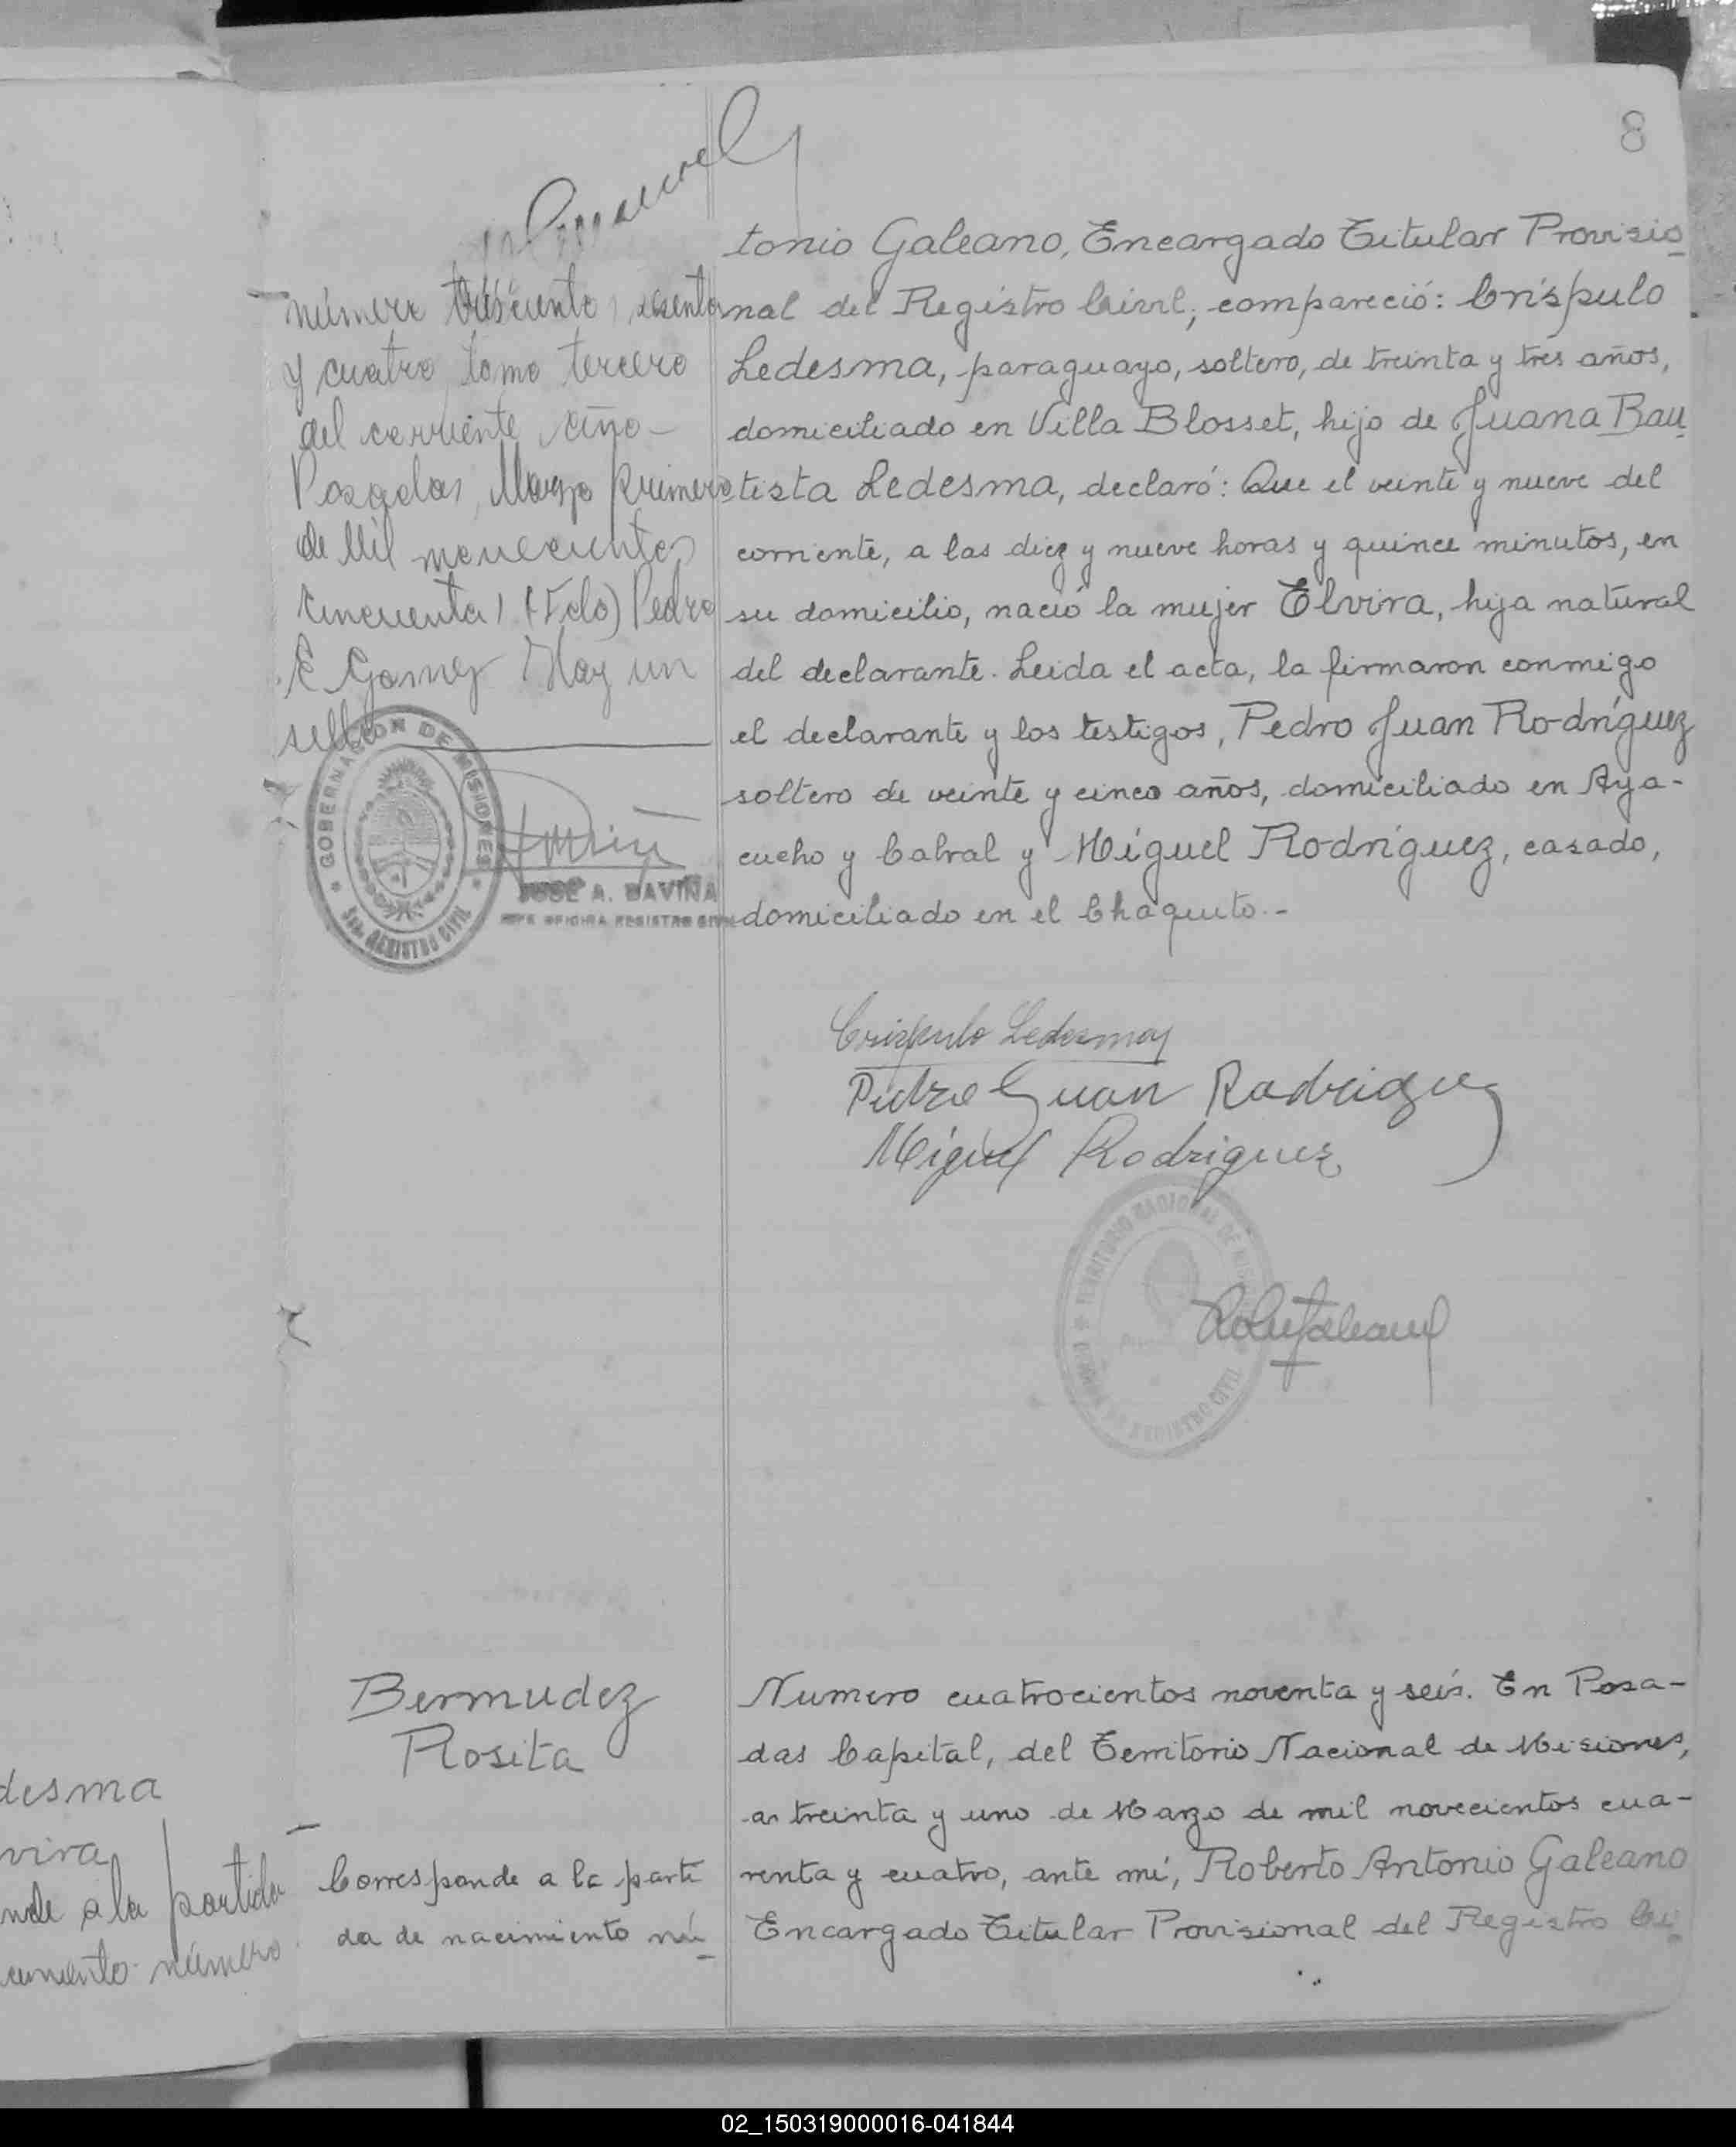 8
número trescientos sesenta
y cuatro tomo tercero
del corriente año-
Posadas, Marzo primero
de Mil novecientos
cincuenta (Fdo) Pedro
E Gomez Hay un
sello
GOBERNACION DE MISIONES
REGISTRO CIVIL
JOSÉ A. DAVIÑA
JEFE OFICINA REGISTRO CIVIL
tonio Galeano, Encargado Titular Provisio
nal del Registro Civil, compareció: Críspulo
Ledesma, paraguayo, soltero, de treinta y tres años,
domiciliado en Villa Blosset, hijo de Juana Bau
tista Ledesma, declaró: Que el veinte y nueve del
corriente, a las diez y nueve horas y quince minutos, en
su domicilio, nació la mujer Elvira, hija natural
del declarante. Leida el acta, la firmaron conmigo
el declarante y los testigos, Pedro Juan Rodríguez
soltero de veinte y cinco años, domiciliado en Aya-
cucho y Cabral y Miguel Rodríguez, casado,
domiciliado en el Chaquito.-
Crispulo Ledesma
Pedro Juan Rodriguez
Miguel Rodriguez
TERRITORIO NACIONAL DE
REGISTRO CIVIL
Bermudez
Rosita
Corresponde a la parti
da de nacimiento nú
Numero cuatrocientos noventa y seis. En Posa-
das Capital, del Territorio Nacional de Misiones,
a treinta y uno de Marzo de mil novecientos cua-
renta y cuatro, ante mí, Roberto Antonio Galeano
Encargado Titular Provisional del Registro Ci
desma
vira
nde a la partida
cimiento número
02_150319000016-041844